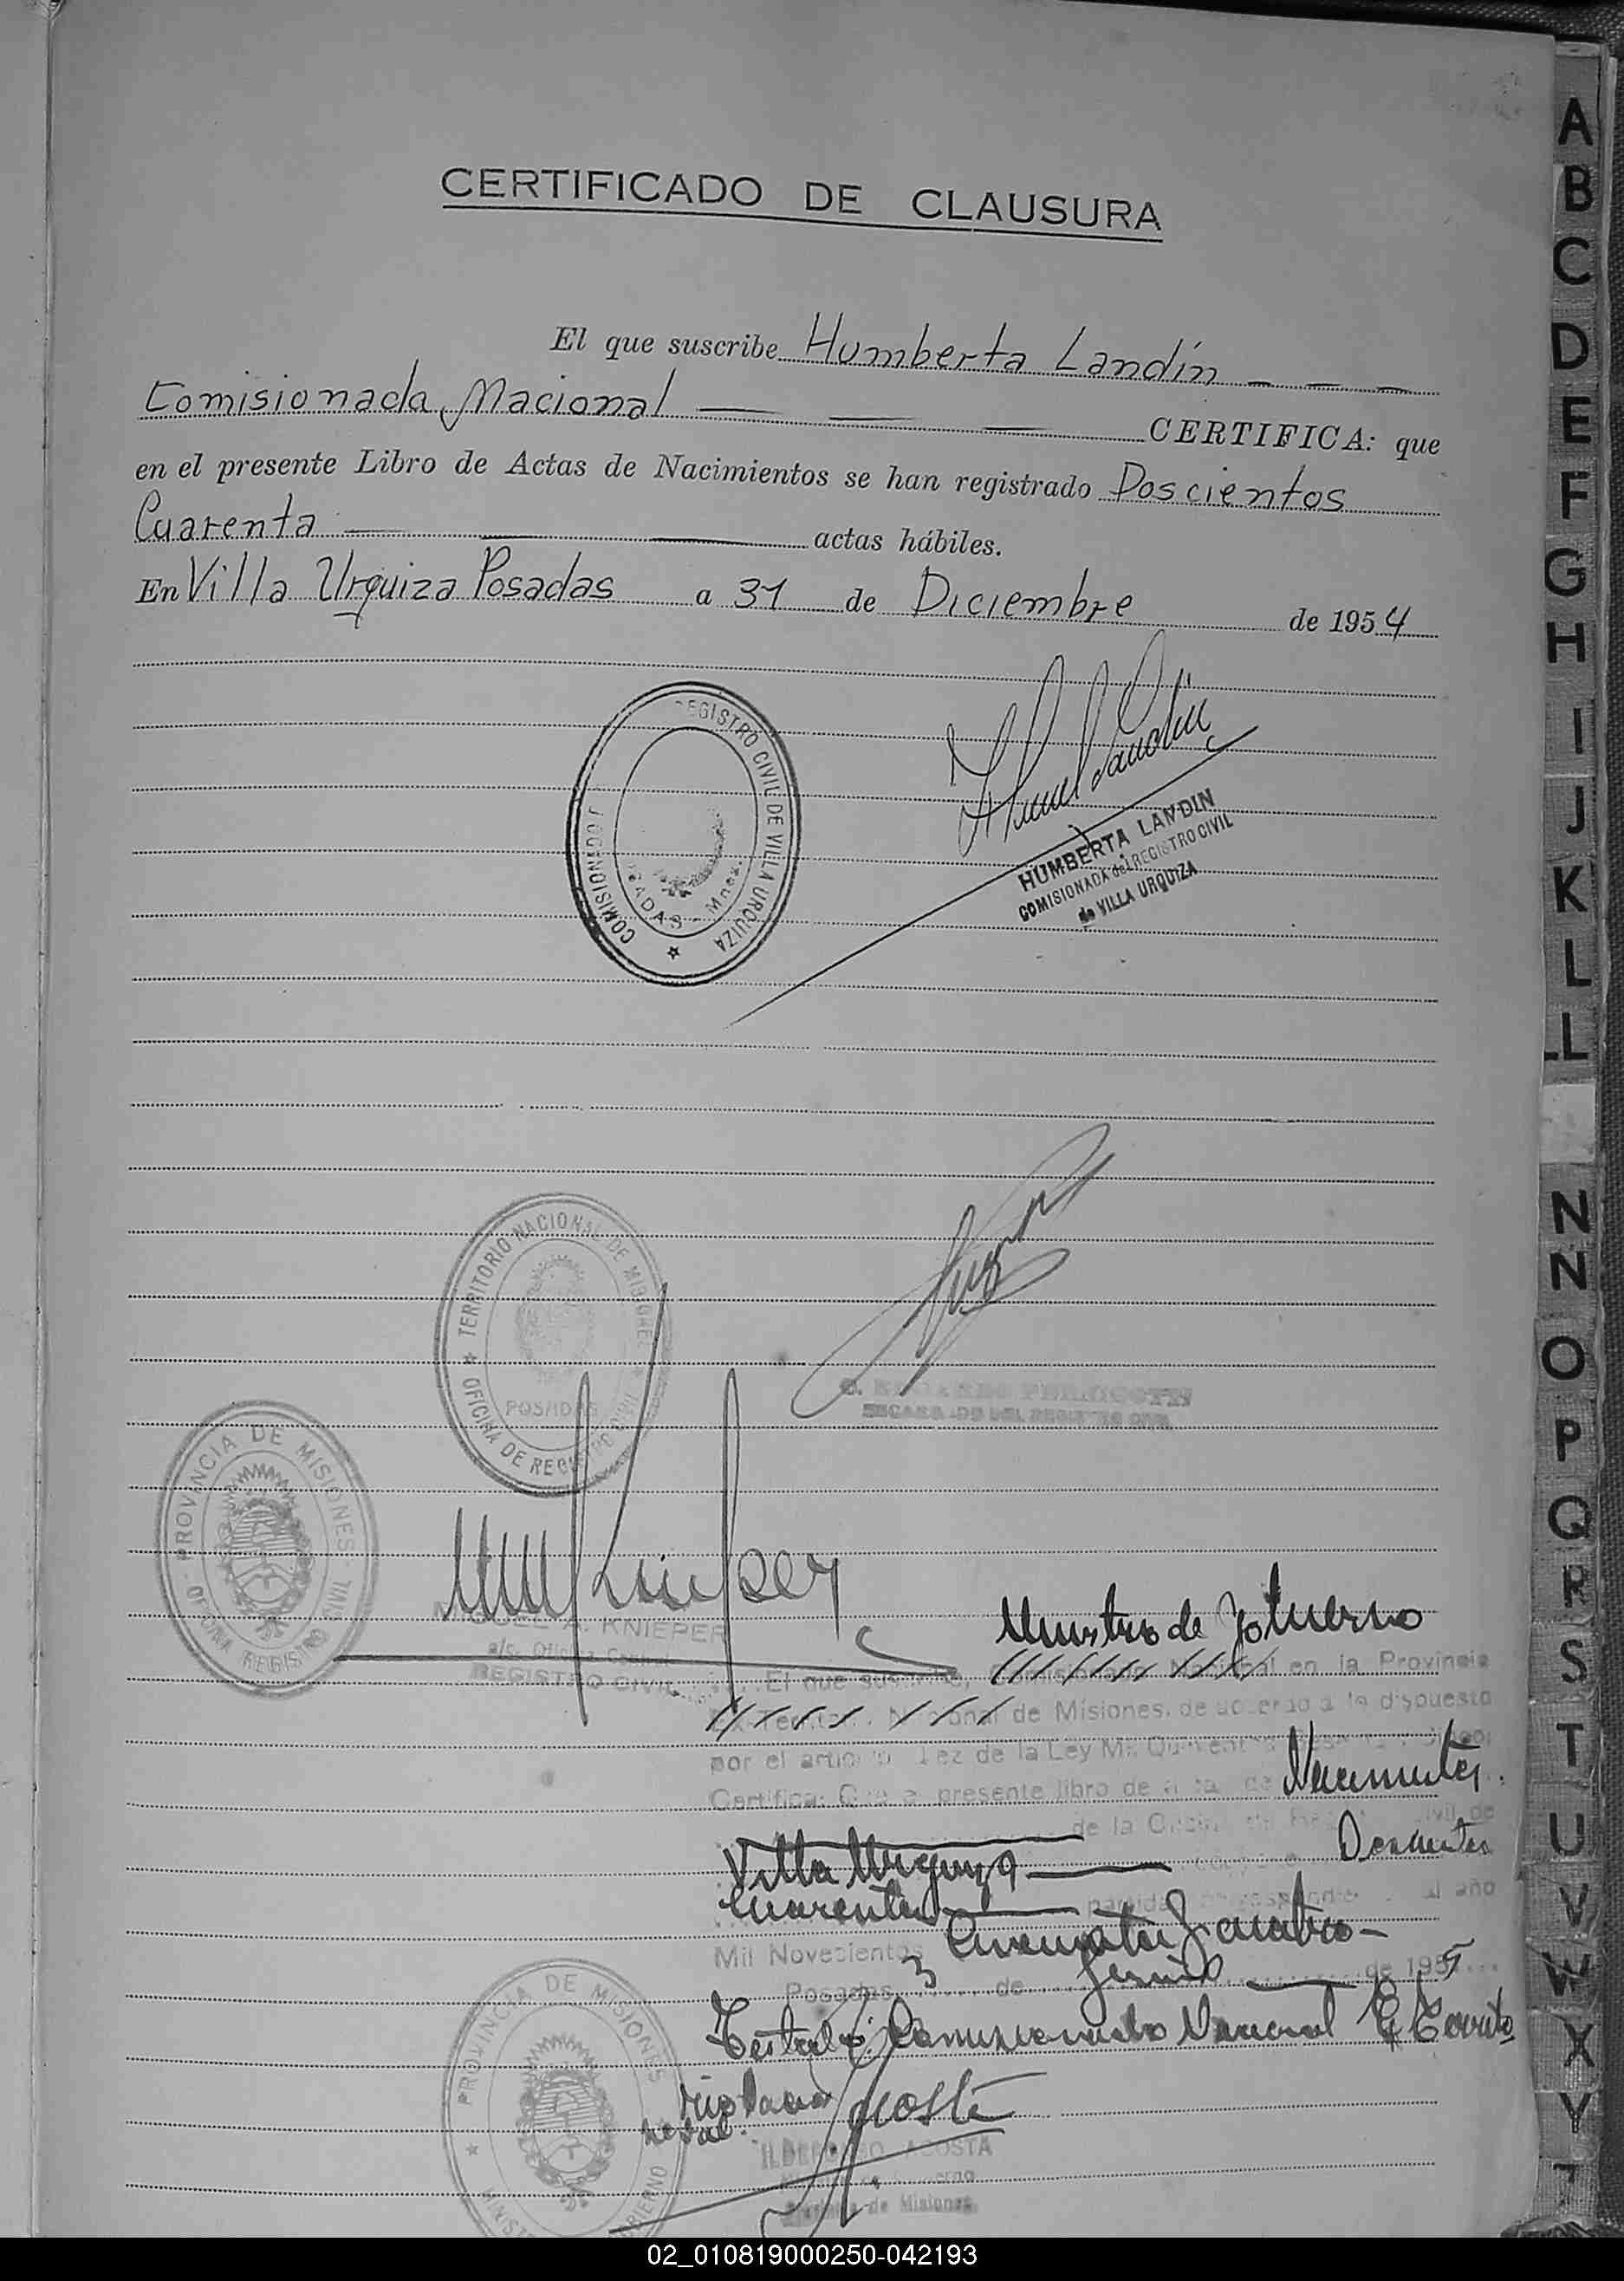 CERTIFICADO DE CLAUSURA
El que suscribe Humberta Landín
Comisionada Nacional CERTIFICA: que
en el presente Libro de Actas de Nacimientos se han registrado Doscientos
Cuarenta actas hábiles.
En Villa Urquiza Posadas a 31 de Diciembre de 1954
REGISTRO CIVIL DE VILLA URQUIZA
POSADAS - Mnes.
HUMBERTA LANDIN
COMISIONADA del REGISTRO CIVIL
de VILLA URQUIZA
TERRITORIO NACIONAL DE MISIONES
OFICINA DE REGISTRO CIVIL
POSADAS
PROVINCIA DE MISIONES
OFICINA REGISTRO CIVIL
A. KNIEPER
a/c. Oficina Central
REGISTRO CIVIL
Ministro de Gobierno
El que suscribe, Comisionado Nacional en la Provincia
Ex-Territ. Nacional de Misiones, de acuerdo a lo dispuesto
por el articulo diez de la Ley
Certifica: Que el presente libro de actas de Nacimientos
de la Oficina de Registro Civil de
Villa Urquiza Doscientos
Cuarenta partidas correspondientes al año
Mil Novecientos Cincuenta y cuatro
Posadas, 3 de de 1955
Comisionado Nacional
PROVINCIA DE MISIONES
ACOSTA
de Misiones
A
B
C
D
E
F
G
H
I
J
K
L
LL
N
N
O
P
Q
R
S
T
U
V
W
X
Y
02_010819000250-042193